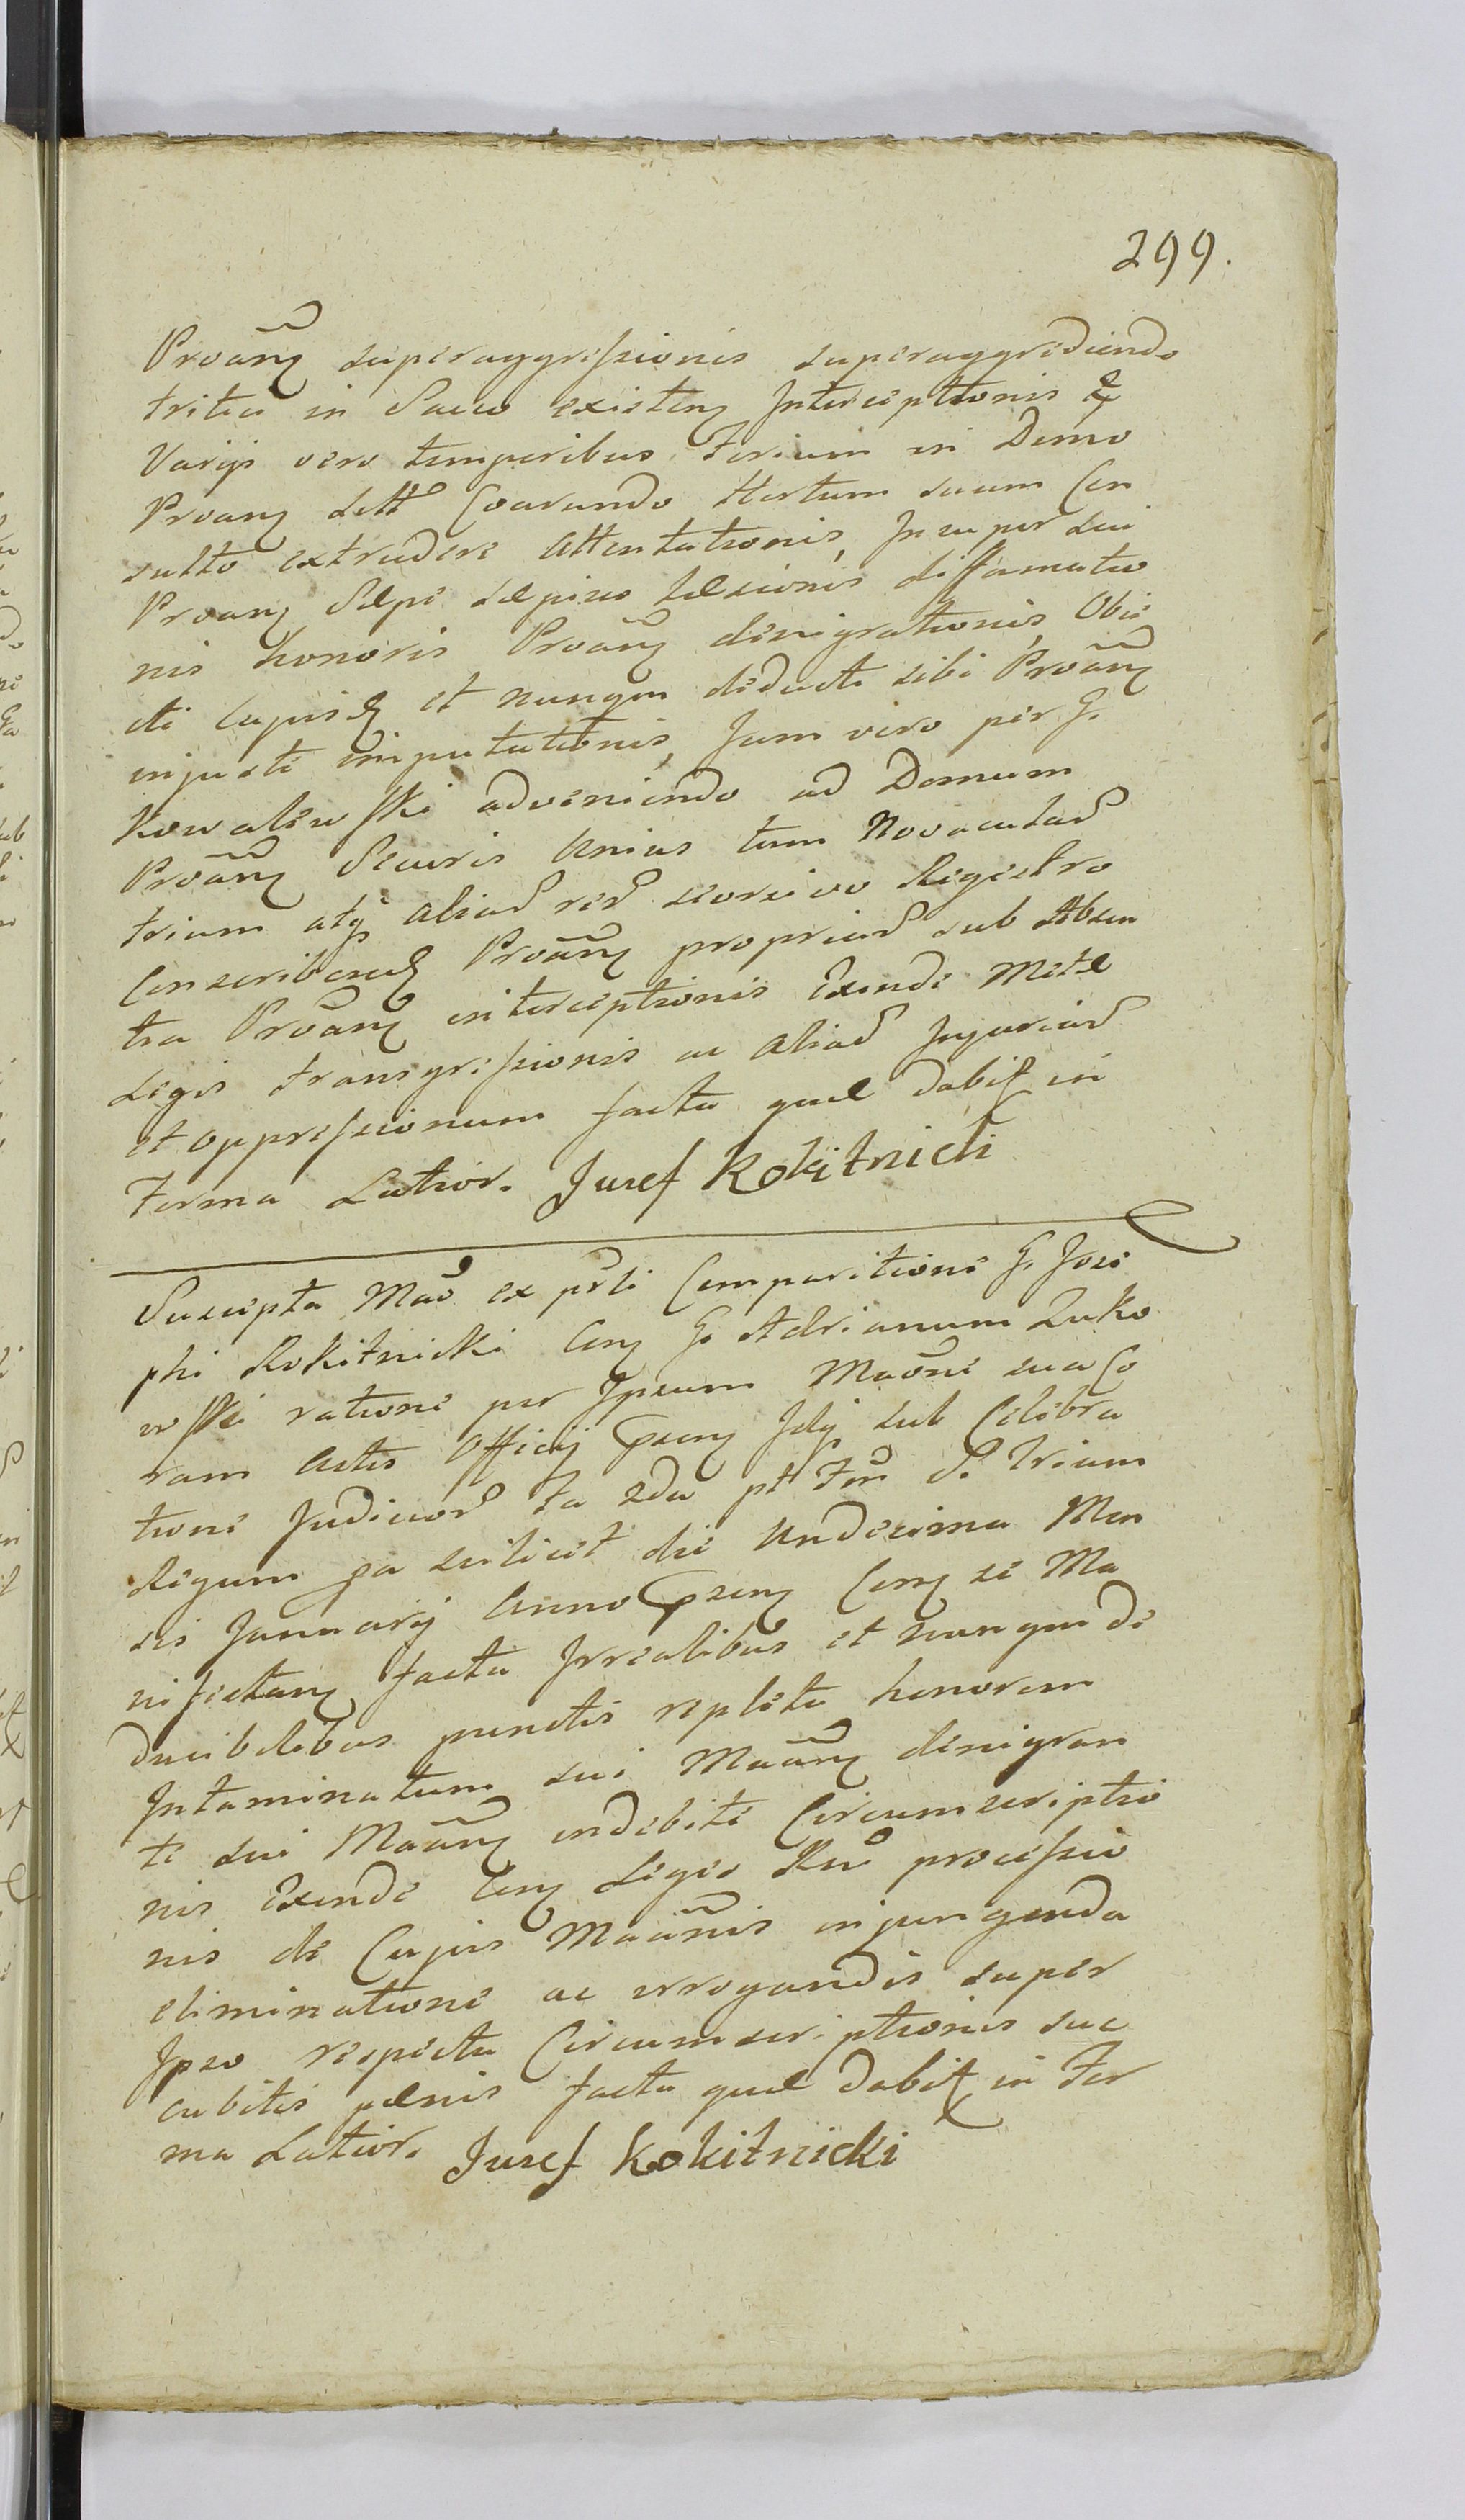 299.
ProãnĘ superaggreſsionis superaggrediendo
tritici in Sacco existenĘ Interceptionis &
Varijs vero temporibus Ferium in Domo
ProanĘ dctt Coarundo Hortum suum Con
sulto extrudere Attentationis, Insuper sui
ProanĘ Sæpe sæpius læsionis diffamatio
nis honoris ProãnĘ denigrationis, Obie
cti Cujusq et nunqm deducti sibi ProãnĘ
injusti imputationis, Jam vero per G.
Kowalewſki adveniendo ad Domum
ProãnĘ Securis Unius tum Novacular̃
trium atq̃ aliar̃ rer̃ seorsivo Regestro
Conscribend ProãnĘ propriar̃ sub Absen
tia ProãnĘ interceptionis Exinde Metæ
Legis transgreſsionis ac aliar̃ Injuriar̃
et oppreſsionum facta quæ dabit in
Forma Latior. Jusef Rokitnicki
Suscepta Mão ex prti Comparitione G. Jose
phi Rokitnicki Con G. Adrianum Zuko
wſki ratione per Ipsum Maõne sua Co
ram Actis Officij PsenĘ Idq sub Celebra
tione Judicior̃ Ta 2da pt Frm S. Trium
Regum fa scilicet die Undecima Men
sis Januarij Anno PsenĘ ConĘ se Ma
nifestanĘ facta Irrealibus et nunqm de
ducibilibus punctis repleta honorem
Intaminatum sui MaãnĘ denigran
te sui MaãnĘ indebite Circumscriptio
nis Exinde ConĘ Legis Rni proceſsio
nis de Cujus Maãnis injungenda
eliminatione ac irrogandis super
Ipso respectu Circumscriptionis suc
cubitis pænis facta quæ dabit in For
ma Latior. Jusef Rokitnicki